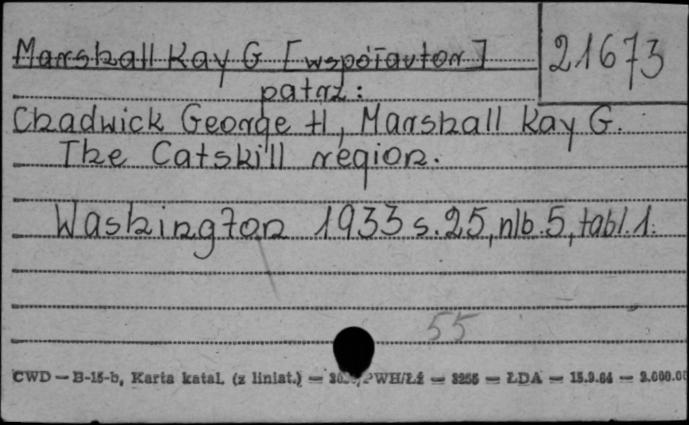 Marshall Kay G [współautor]
21673
patrz:
Chadwick George H, Marshall Kay G.
The Catskill region.
Washington 1933 s. 25, nlb. 5, tabl. 1.
55
CWD — B-15-b, Karta katal. (z liniat.) — PWH/Łź — 3255 — ŁDA — 15.9.64 —